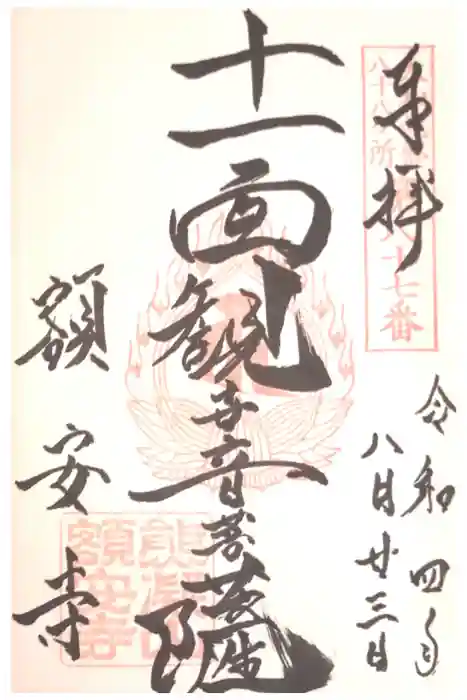 奉拝
八十八所
八十七番
令和四年
八月廿三日
十一面観世音菩薩
額安寺
熊凝山
額安寺